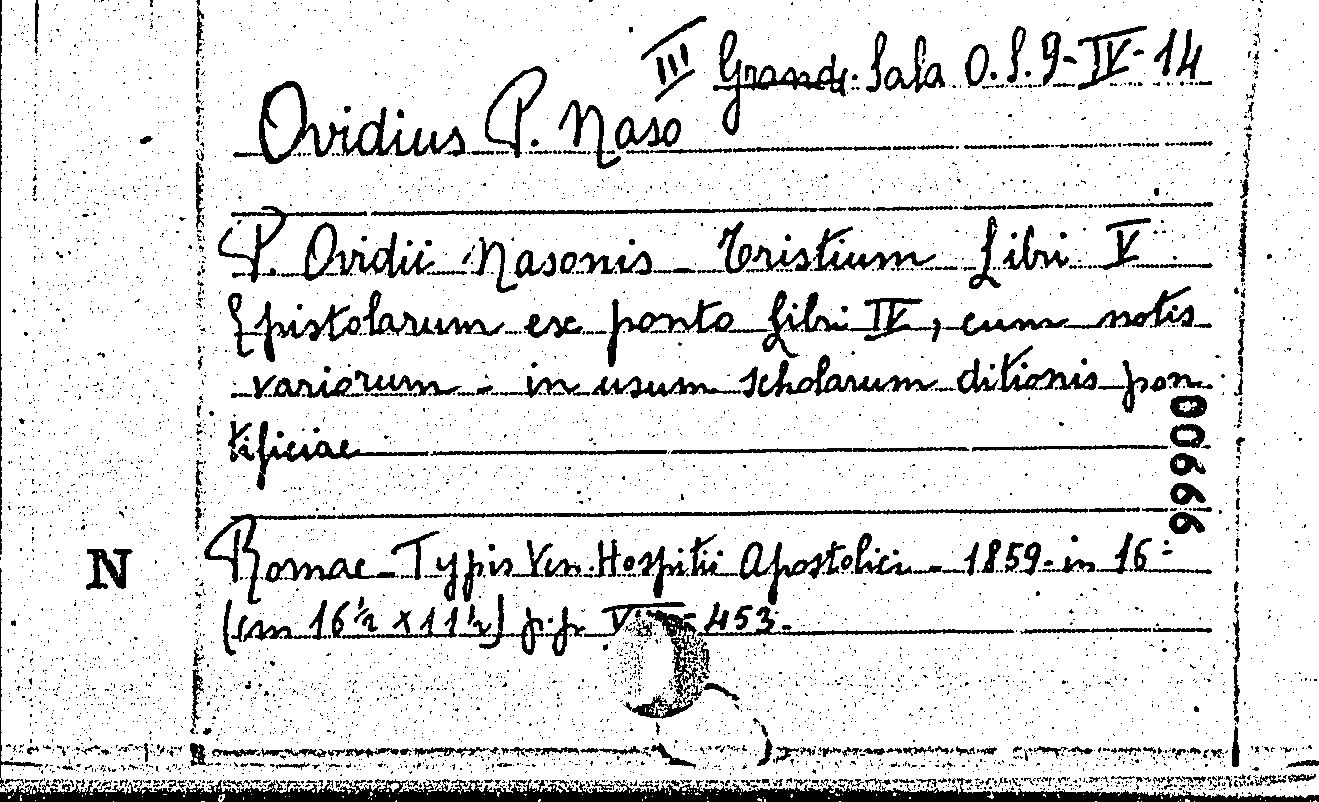 III Grande Sala O.S.9-IV-14
Ovidius P. Naso
P. Ovidii Nasonis - Tristium Libri V
Epistolarum ex ponto Libri IV, cum notis
variorum - in usum scholarum ditionis pon
tificiae
99900
N
Romae - Typis Ven. Hospitii Apostolici - 1859 - in 16º
(cm 16½ x 11½) p.p. - 453.